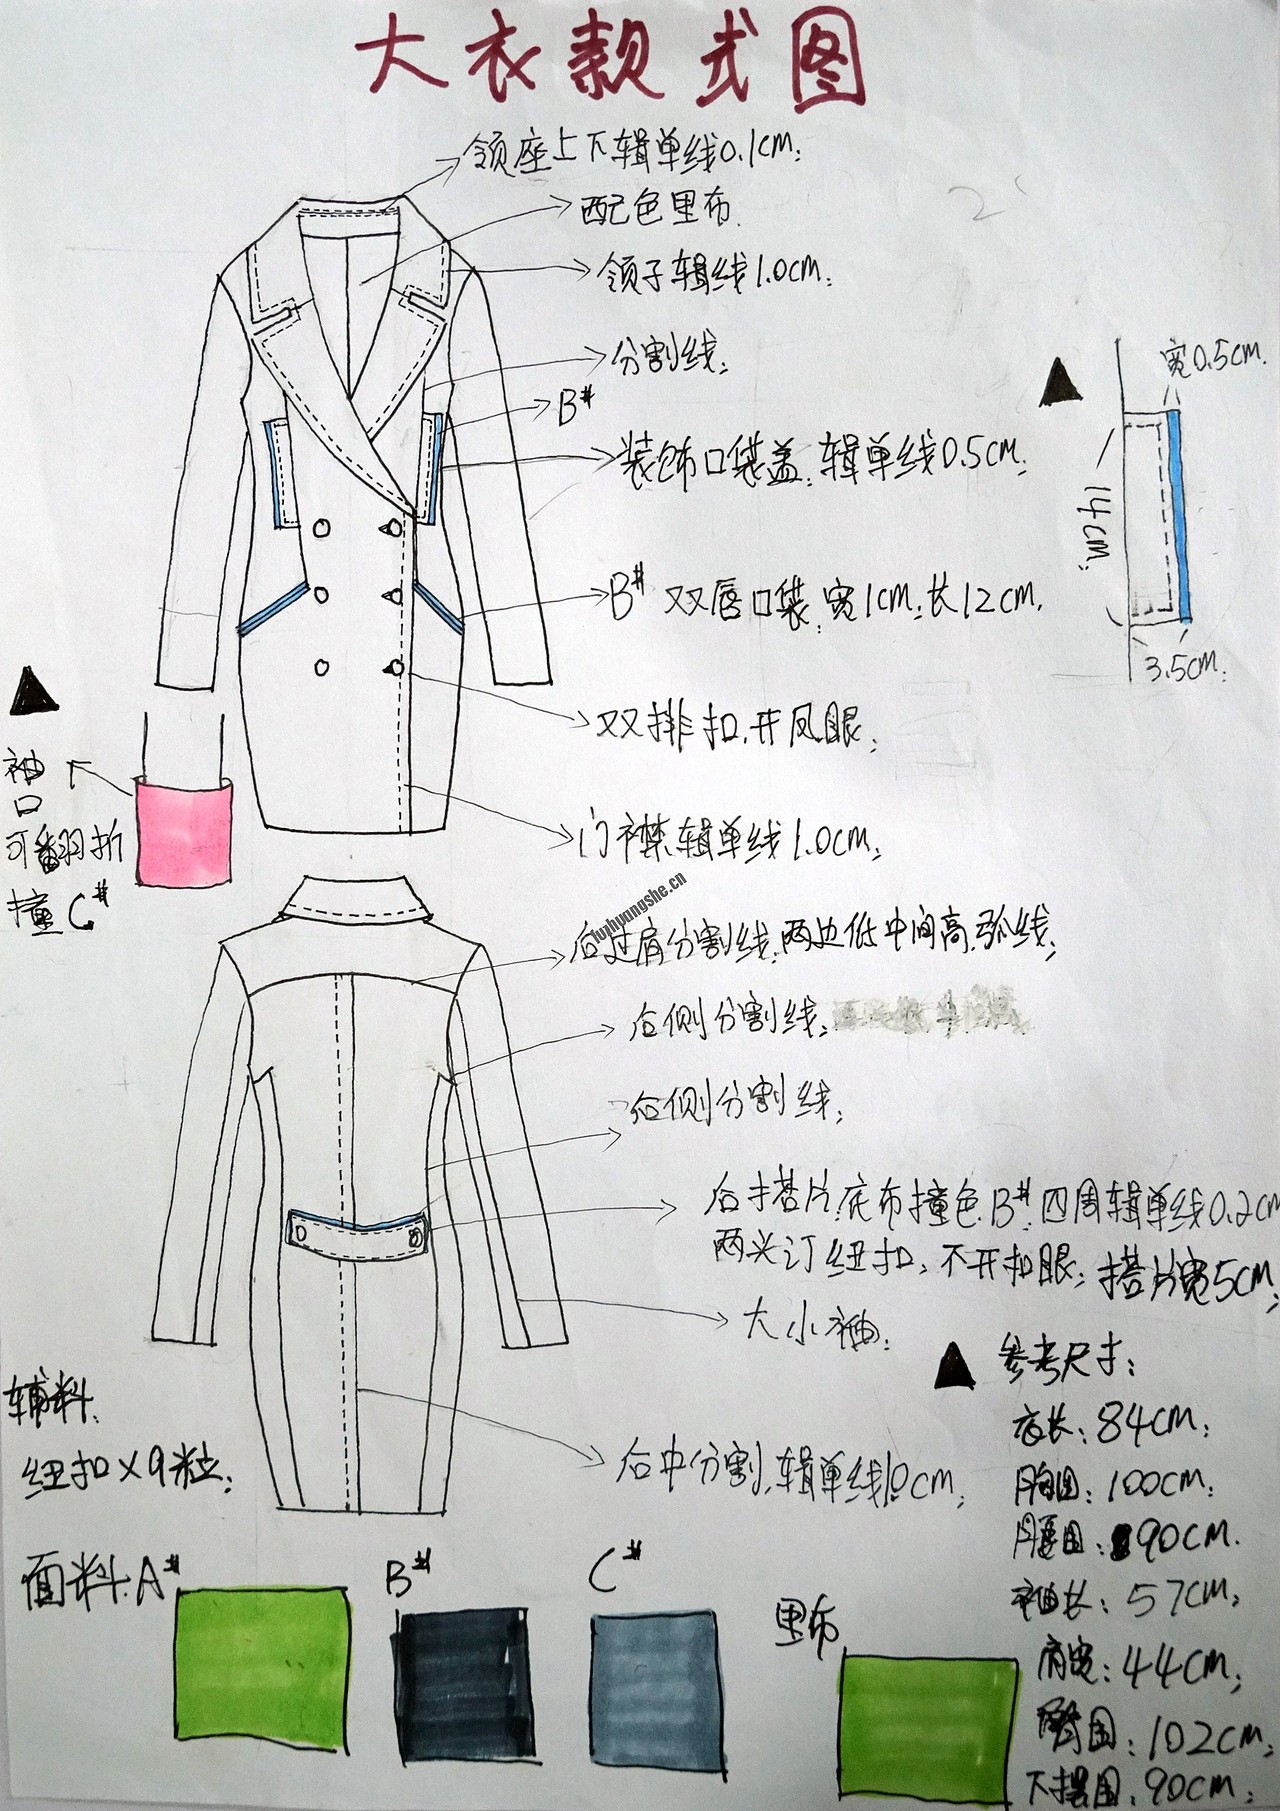 大衣款式图
领座上下辑单线0.1cm;
配色里布.
领子辑线1.0cm;
分割线;
B#
装饰口袋盖;辑单线0.5cm;
宽0.5cm.
14cm;
3.5cm;
B# 双唇口袋;宽1cm;长12cm.
双排扣.开凤眼;
门襟辑单线1.0cm;
袖口
可翻折
撞C#
luyihuangshe.cn
后过肩分割线;两边低中间高.弧线;
后侧分割线;
后侧分割线;
后搭片;底布撞色B#.四周辑单线0.2cm
两头订纽扣;不开扣眼;搭片宽5cm;
大小袖;
后中分割,辑单线1.0cm;
辅料.
纽扣×9粒;
参考尺寸:
衣长:84cm;
胸围:100cm;
腰围:90cm.
袖长:57cm;
肩宽:44cm;
臀围:102cm;
下摆围:90cm;
面料:A#
B#
C#
里布
2